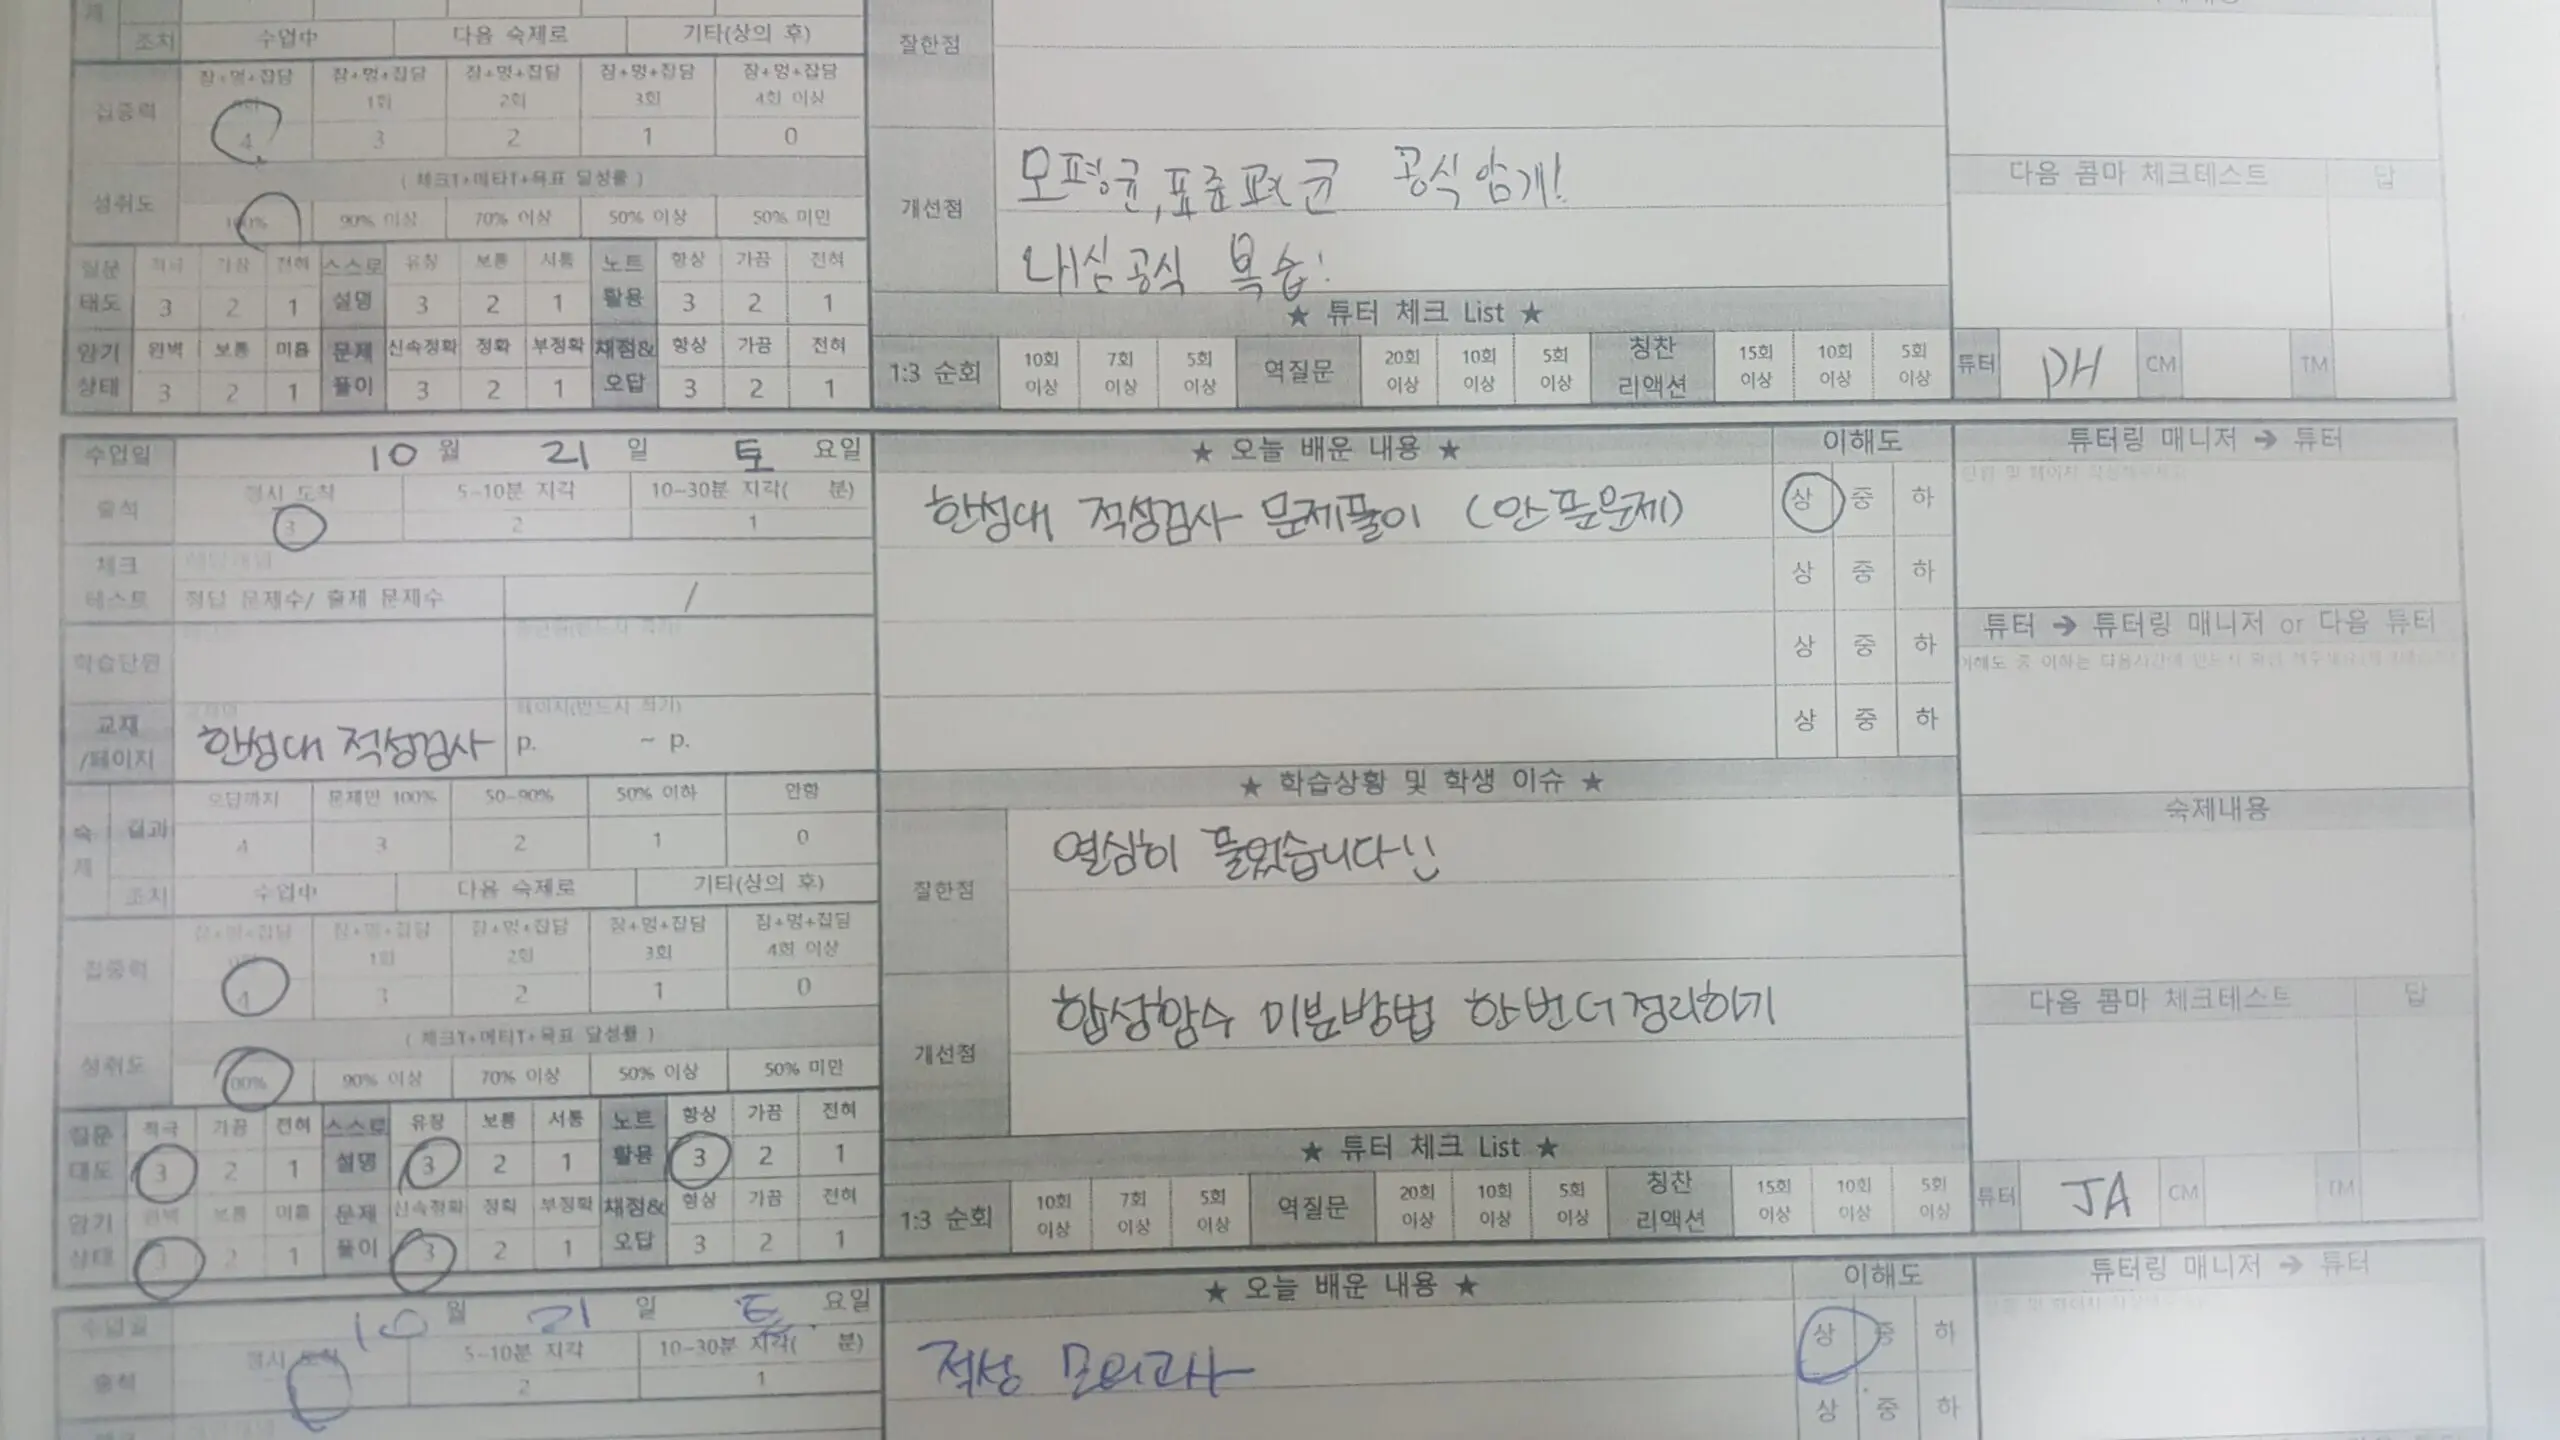 제 조치 수업中 다음 숙제로 기타(상의 후)
집중력 잠+멍+잡담 잠+멍+잡담 1회 잠+멍+잡담 2회 잠+멍+잡담 3회 잠+멍+잡담 4회 이상
4 3 2 1 0
성취도 ( 체크T+메타T+목표 달성률 )
100% 90% 이상 70% 이상 50% 이상 50% 미만
질문 적극 가끔 전혀 스스로 유창 보통 서툼 노트 항상 가끔 전혀
태도 3 2 1 설명 3 2 1 활용 3 2 1
암기 완벽 보통 미흡 문제 신속정확 정확 부정확 채점& 항상 가끔 전혀
상태 3 2 1 풀이 3 2 1 오답 3 2 1
잘한점
개선점
모평균, 표준편차 공식암기!
내심공식 복습!
★ 튜터 체크 List ★
1:3 순회 10회 이상 7회 이상 5회 이상 역질문 20회 이상 10회 이상 5회 이상 칭찬 리액션 15회 이상 10회 이상 5회 이상
다음 콤마 체크테스트 답
튜터 DH CM TM
수업일 10 월 21 일 토 요일
출석 정시 도착 5-10분 지각 10-30분 지각( 분)
3 2 1
체크
테스트 정답 문제수/ 출제 문제수 /
학습단원
교재
/페이지 한성대 적성검사 페이지(반드시 적기)
p. ~ p.
숙제 결과 오답까지 문제만 100% 50-90% 50% 이하 안함
4 3 2 1 0
조치 수업中 다음 숙제로 기타(상의 후)
집중력 잠+멍+잡담 0회 잠+멍+잡담 1회 잠+멍+잡담 2회 잠+멍+잡담 3회 잠+멍+잡담 4회 이상
4 3 2 1 0
성취도 ( 체크T+메타T+목표 달성률 )
100% 90% 이상 70% 이상 50% 이상 50% 미만
질문 적극 가끔 전혀 스스로 유창 보통 서툼 노트 항상 가끔 전혀
태도 3 2 1 설명 3 2 1 활용 3 2 1
암기 완벽 보통 미흡 문제 신속정확 정확 부정확 채점& 항상 가끔 전혀
상태 3 2 1 풀이 3 2 1 오답 3 2 1
★ 오늘 배운 내용 ★ 이해도
한성대 적성검사 문제풀이 (안 푼문제) 상 중 하
상 중 하
상 중 하
상 중 하
★ 학습상황 및 학생 이슈 ★
잘한점
열심히 풀었습니다!!
개선점
합성함수 미분방법 한번더 정리하기
★ 튜터 체크 List ★
1:3 순회 10회 이상 7회 이상 5회 이상 역질문 20회 이상 10회 이상 5회 이상 칭찬 리액션 15회 이상 10회 이상 5회 이상
튜터링 매니저 → 튜터
튜터 → 튜터링 매니저 or 다음 튜터
숙제내용
다음 콤마 체크테스트 답
튜터 JA CM TM
수업일 10 월 21 일 토 요일
출석 정시 도착 5-10분 지각 10-30분 지각( 분)
2 1
★ 오늘 배운 내용 ★ 이해도
적성 모의고사 상 중 하
상 중 하
튜터링 매니저 → 튜터